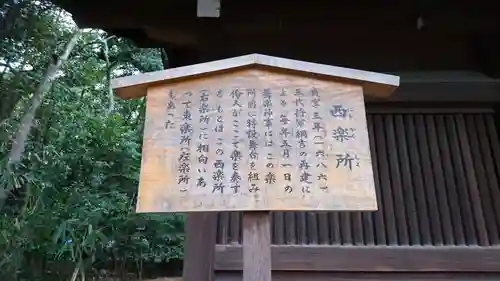 西楽所
貞享三年(一六八六)
五代将軍綱吉の再建に
よる 毎年五月一日の
舞楽神事にはこの楽
所前に特設舞台を組み
伶人がここで楽を奏す
る もとはこの西楽所
(右楽所)に相向いあ
って東楽所(左楽所)
もあった